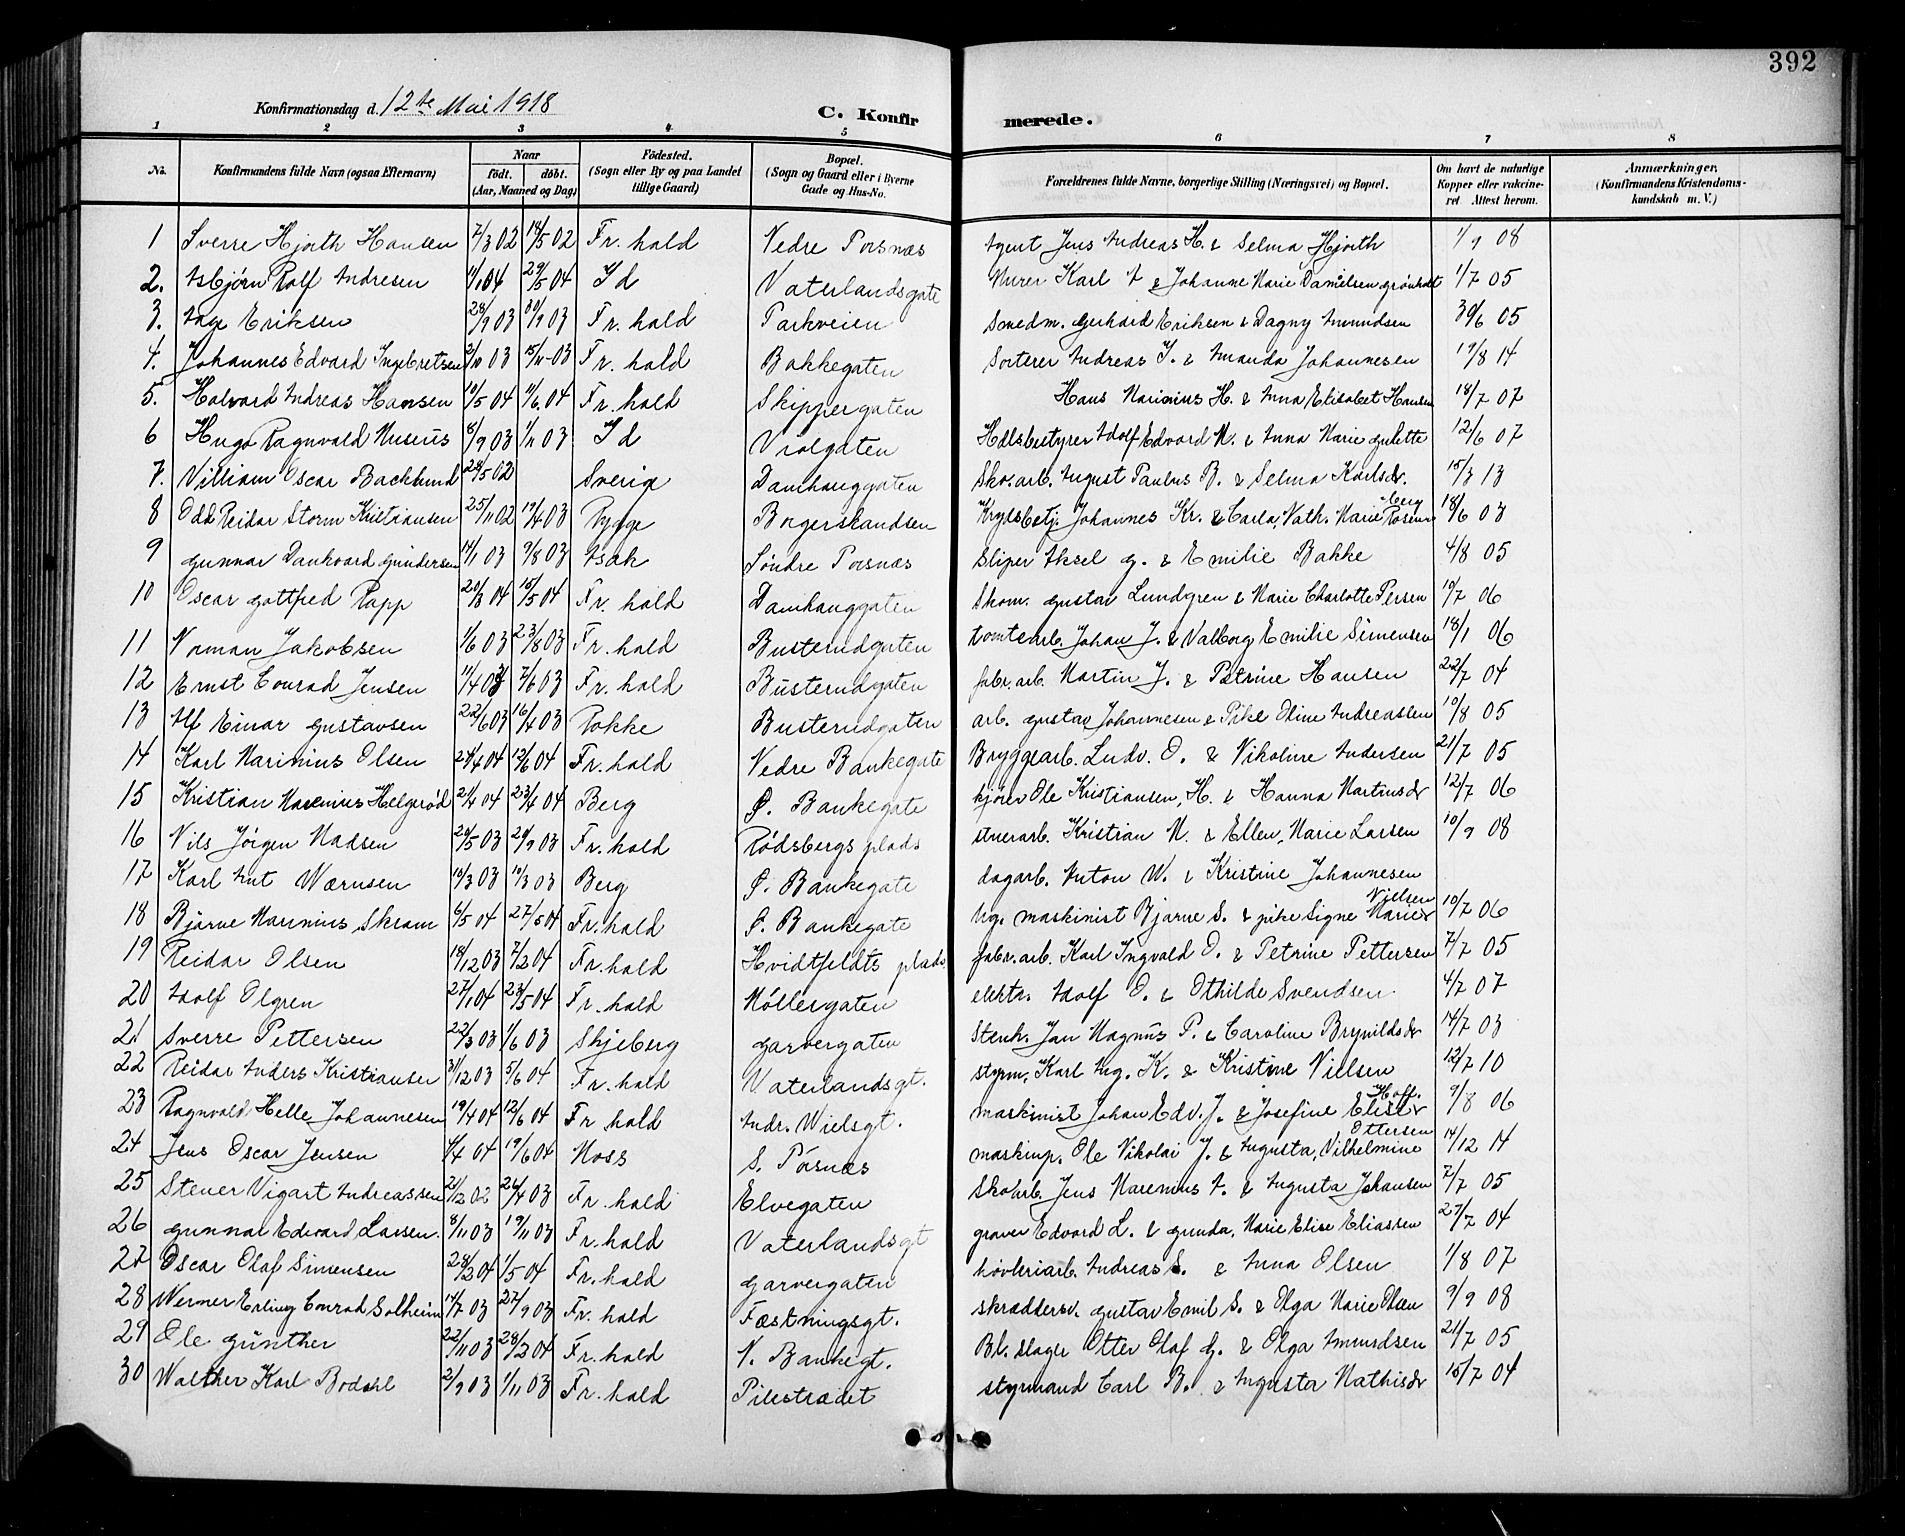 392
Konfirmationsdag d. 12te Mai 1918
C. Konfirmerede.
1 2 3 4 5 6 7 8
No. Konfirmandens fulde Navn (ogsaa Efternavn) Naar født. døbt. (Aar, Maaned og Dag) Fødested. (Sogn eller By og paa Landet tillige Gaard) Bopæl. (Sogn og Gaard eller i Byerne Gade og Hus-No. Forældrenes fulde Navne, borgerlige Stilling (Næringsvei) og Bopæl. Om havt de naturlige Kopper eller vakcineret. Attest herom. Anmærkninger. (Konfirmandens Kristendomskundskab m. V.)
1 Sverre Hjorth Hansen 7/3 02 14/5 02 Fr.hald Nedre Porsnæs Agent Jens Andreas H. & Selma Hjorth 1/9 08
2. Asbjørn Rolf Andresen 11/1 04 29/5 04 Id Vaterlandsgate Murer Karl A & Johanne Marie Danielsen Grønholt 1/7 05
3. Aage Eriksen 28/9 03 Fr.hald Parkveien Smedm. Gerhard Eriksen & Dagny Amundsen 30/6 05
4. Johannes Edvard Ingebretsen 2/10 03 15/11 03 Fr.hald Bakkegaten Sorterer Andreas I. & Amanda Johannesen 19/8 14
5. Halvard Andreas Hansen 10/5 04 11/6 04 Fr.hald Skippergaten Hans Marinius H. & Anna Elisabet Hansen 18/7 07
6 Hugo Ragnvald Musius 8/9 03 1/11 03 Id Violgaten Hdlsbestyrer Adolf Edvard M. & Anna Marie Gulette 12/6 07
7. Villiam Oscar Backlund 28/5 02 Sverige Damhauggaten Sko.arb. August Paulus B. & Selma Karlsdr. 15/3 13
8 Odd Reidar Storm Kristiansen 25/11 02 19/4 03 Rygge Borgerskandsen Krydsbetj. Johannes Kr. & Carla, Nath. Marie Rosenberg 18/6 03
9 Gunnar Dankvard Gundersen 14/1 03 9/8 03 Asak Søndre Porsnæs Sliper Aksel G. & Emilie Bakke 4/8 05
10 Oscar Gottfred Rapp 20/3 04 15/5 04 Fr.hald Damhauggaten Skom. Gustav Lundgren & Marie Charlotte Persen 10/7 06
11 Norman Jakobsen 1/6 03 23/8 03 Fr.hald Busterudgaten tomtearb. Johan J. & Valborg Emilie Simensen 18/1 06
12 Ernst Conrad Jensen 11/4 03 7/6 03 Fr.hald Busterudgaten fabr.arb. Martin J. & Petrine Hansen 22/7 04
13 Alf Einar Gustavsen 22/6 03 16/4 03 Rokke Busterudgaten arb. Gustav Johannesen & Pike Oline Andreassen 10/8 05
14 Karl Marinius Olsen 24/4 04 12/6 04 Fr.hald Nedre Bankegate Bryggearb. Ludv. O. & Nikoline Andersen 21/7 05
15 Kristian Marenius Helgerød 2/4 04 23/4 04 Berg Ø. Bankegate kjører Ole Kristiansen, H. & Hanna Martinsdr 12/7 06
16 Nils Jørgen Madsen 20/5 03 20/9 03 Fr.hald Rødsbergs plads stuerarb. Kristian M. & Ellen, Marie Larsen 10/9 08
17 Karl Ant Wærnsen 10/3 03 19/3 03 Berg Ø. Bankegate dagarb. Anton W. & Kristine Johannesen
18 Bjarne Marinius Skram 6/5 04 27/5 04 Fr.hald Ø. Bankegate Ug. maskinist Bjarne S. & pike Signe Marie Nielsen 10/7 06
19 Reidar Olsen 18/12 03 7/2 04 Fr.hald Hvidtfeldts plads fabr.arb. Karl Ingvald O. & Petrine Pettersen 7/7 05
20 Adolf Olgren 27/1 04 23/5 04 Fr.hald Møllergaten elektr. Adolf O. & Othilde Svendsen 4/7 07
21 Sverre Pettersen 22/3 03 1/6 03 Skjeberg Garvergaten Stenh. Jan Magnus P. & Caroline Brynildsdr 14/7 03
22 Reidar Anders Kristiansen 31/12 03 5/6 04 Fr.hald Vaterlandsgt. styrm. Karl Aug. K. & Kristine Nielsen 12/7 10
23 Ragnvald Helle Johannesen 19/4 04 12/6 04 Fr.hald Andr. Wielsgt. maskinist Johan Edv. J. & Josefine Elise Hoff. 9/8 06
24 Jens Oscar Jensen 4/4 04 19/6 04 Moss S. Porsnæs maskinp. Ole Nikolai J. & Augusta, Vilhelmine Ottersen 14/12 14
25 Stener Vigart Andreassen 21/12 02 26/4 03 Fr.hald Elvegaten Sko arb. Jens Marenius A. & Augusta Johansen 7/7 05
26 Gunnar Edvard Larsen. 8/11 03 19/11 03 Fr.hald Vaterlandsgt graver Edvard L. & Gunda, Marie Elise Eliassen 27/7 04
27 Oscar Olaf Simensen 28/2 04 1/5 04 Fr.hald Garvergaten høvleriarb. Andreas S. & Anna Olsen 1/8 07
28 Werner Erling Conrad Solheim 14/7 03 27/9 03 Fr.hald Fæstningsgt. skræddersv. Gustav Emil S. & Olga Marie Olsen 9/9 08
29 Ole Günther 22/11 03 28/2 04 Fr.hald N. Bankegt. Bl. slager Otter Olaf G. & Olga Amundsen 21/7 05
30 Walther Karl Bodahl 2/9 03 1/11 03 Fr.hald Pilestrædet styrmand Carl B. & Augusta Mathisdr 15/7 04